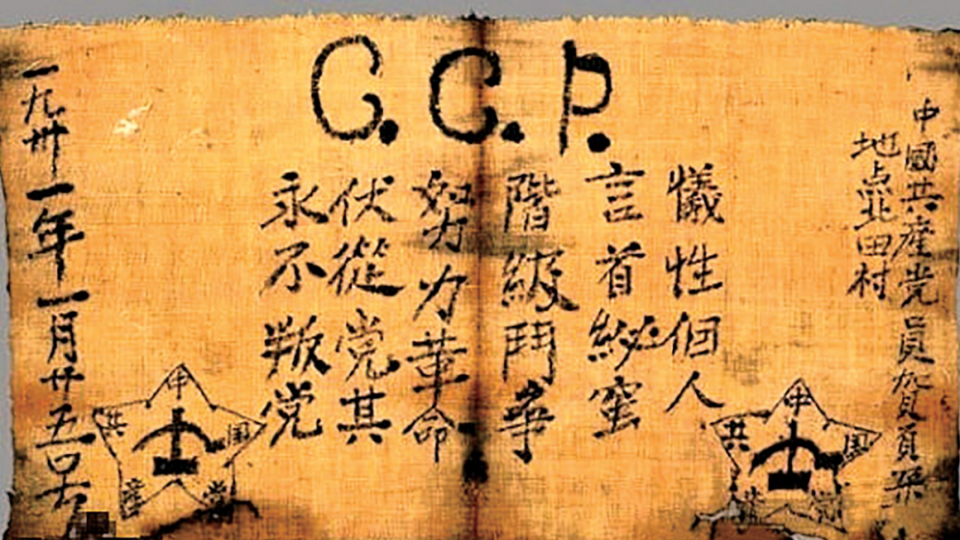 C.C.P.
中國共產党員贺頁朵
地点北田村
犧性個人
言首紗蜜
階級鬥争
努力革命
伏從党其
永不叛党
一九卅一年一月廿五
中国共産党
中国共